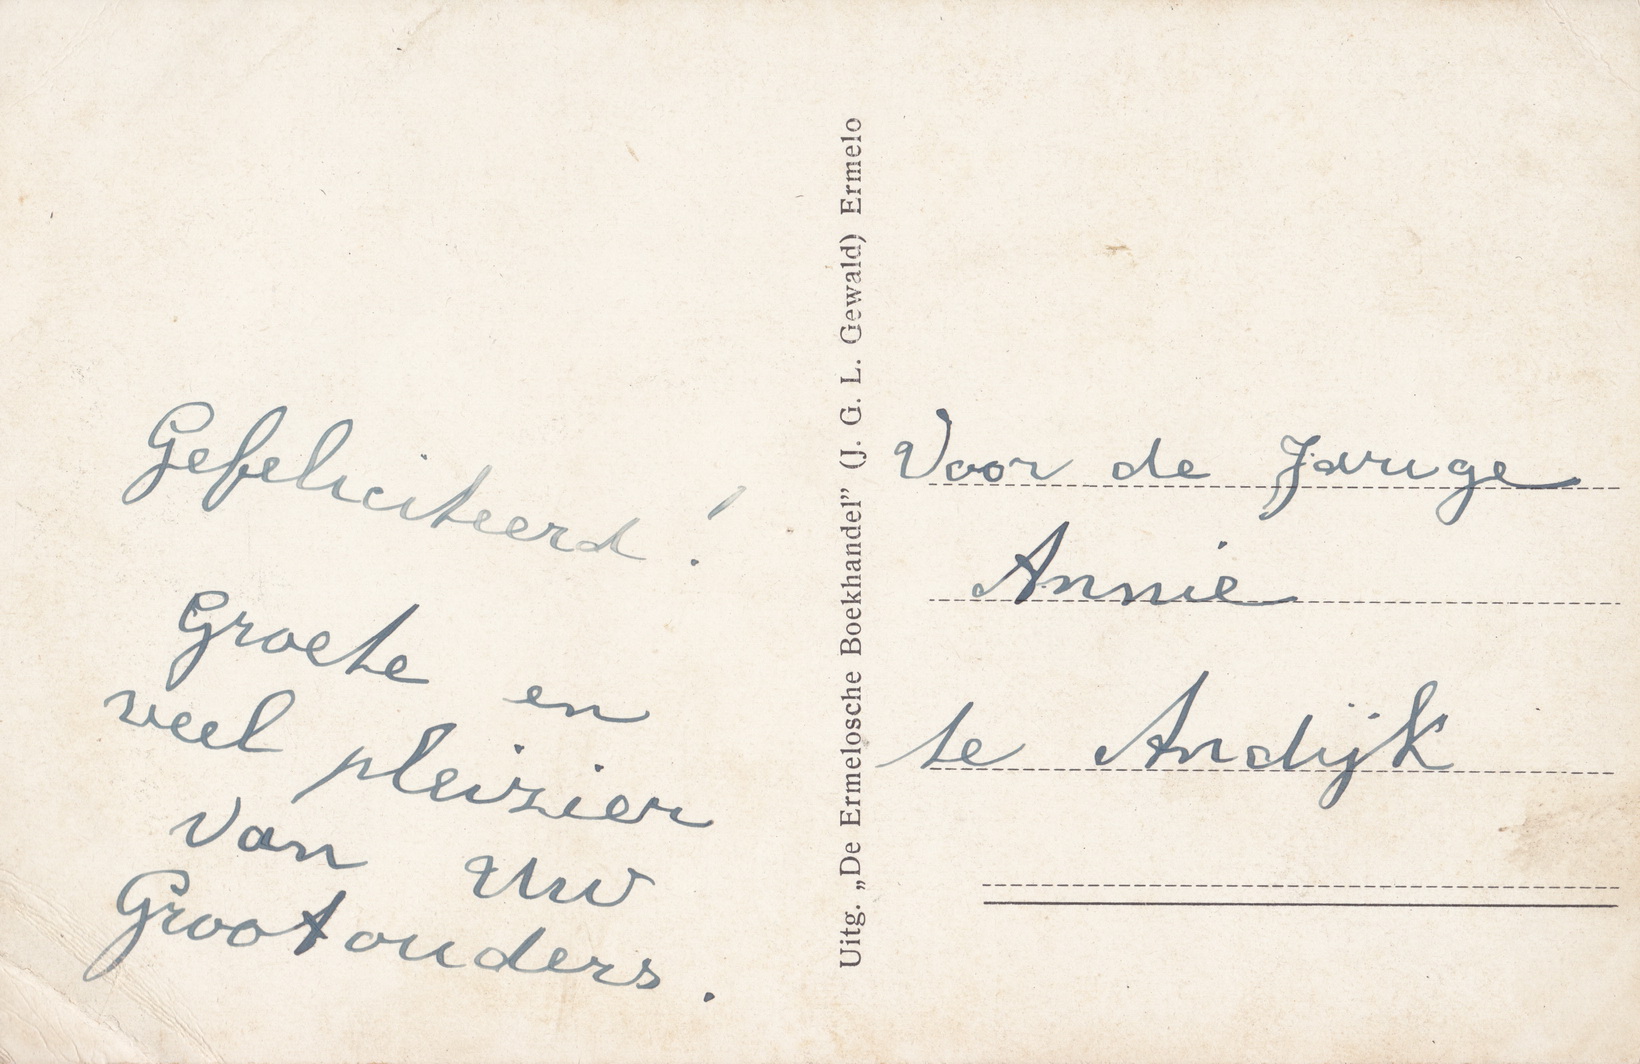 Gefeliciteerd!
Groete en
veel pleizier
van Uw
Grootouders.
Uitg. „De Ermelosche Boekhandel” (J. G. L. Gewald) Ermelo
Voor de Jarige
Annie
te Andijk